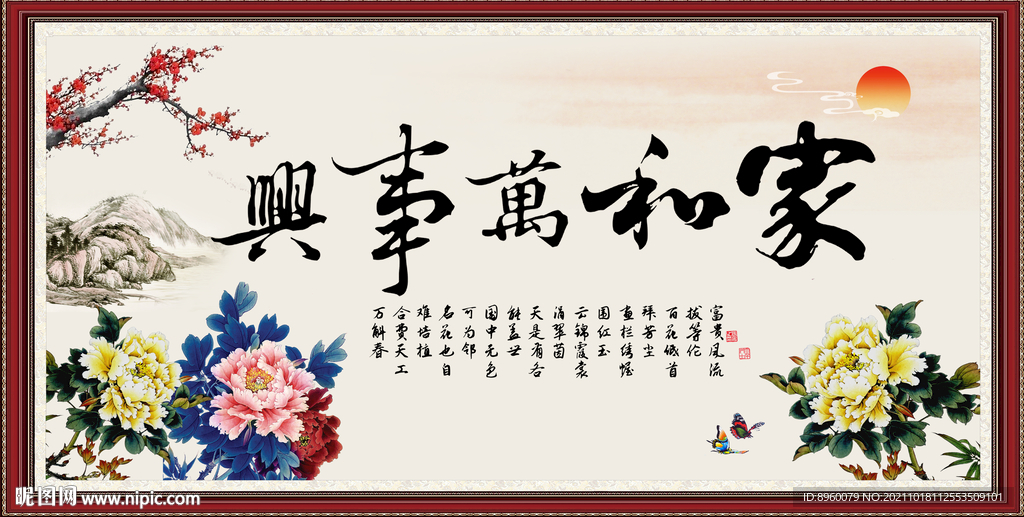 家和萬事興
富贵風流
拔等伦
百花低首
拜芳尘
画栏绣幄
围红玉
云锦霞裳
涓翠茵
天是有各
能盖世
国中无色
可为邻
名花也自
难培植
合费天工
万斛春
昵图网 www.nipic.com
ID:8960079 NO:20211018112553509101